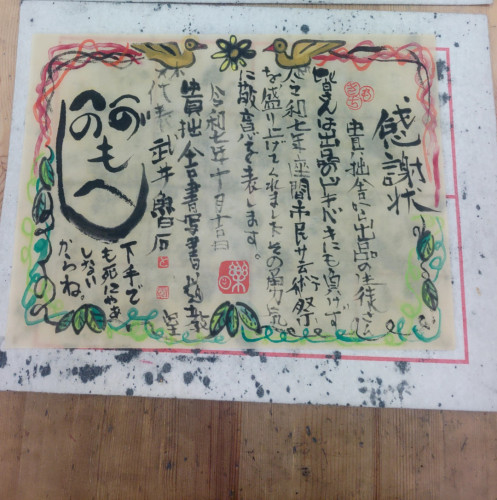 感謝状
貴拙舎へ出品の生徒さん
皆さんは出品のドキドキにも負けず
令和七年座間市民芸術祭
を盛り上げてくれましたその勇気
に敬意を表します。
令和七年十月吉日
貴拙舎書写書道教室
代表 武井魯石
楽
へのへの
もへ
下手で
も死にゃあ
しない
からね。